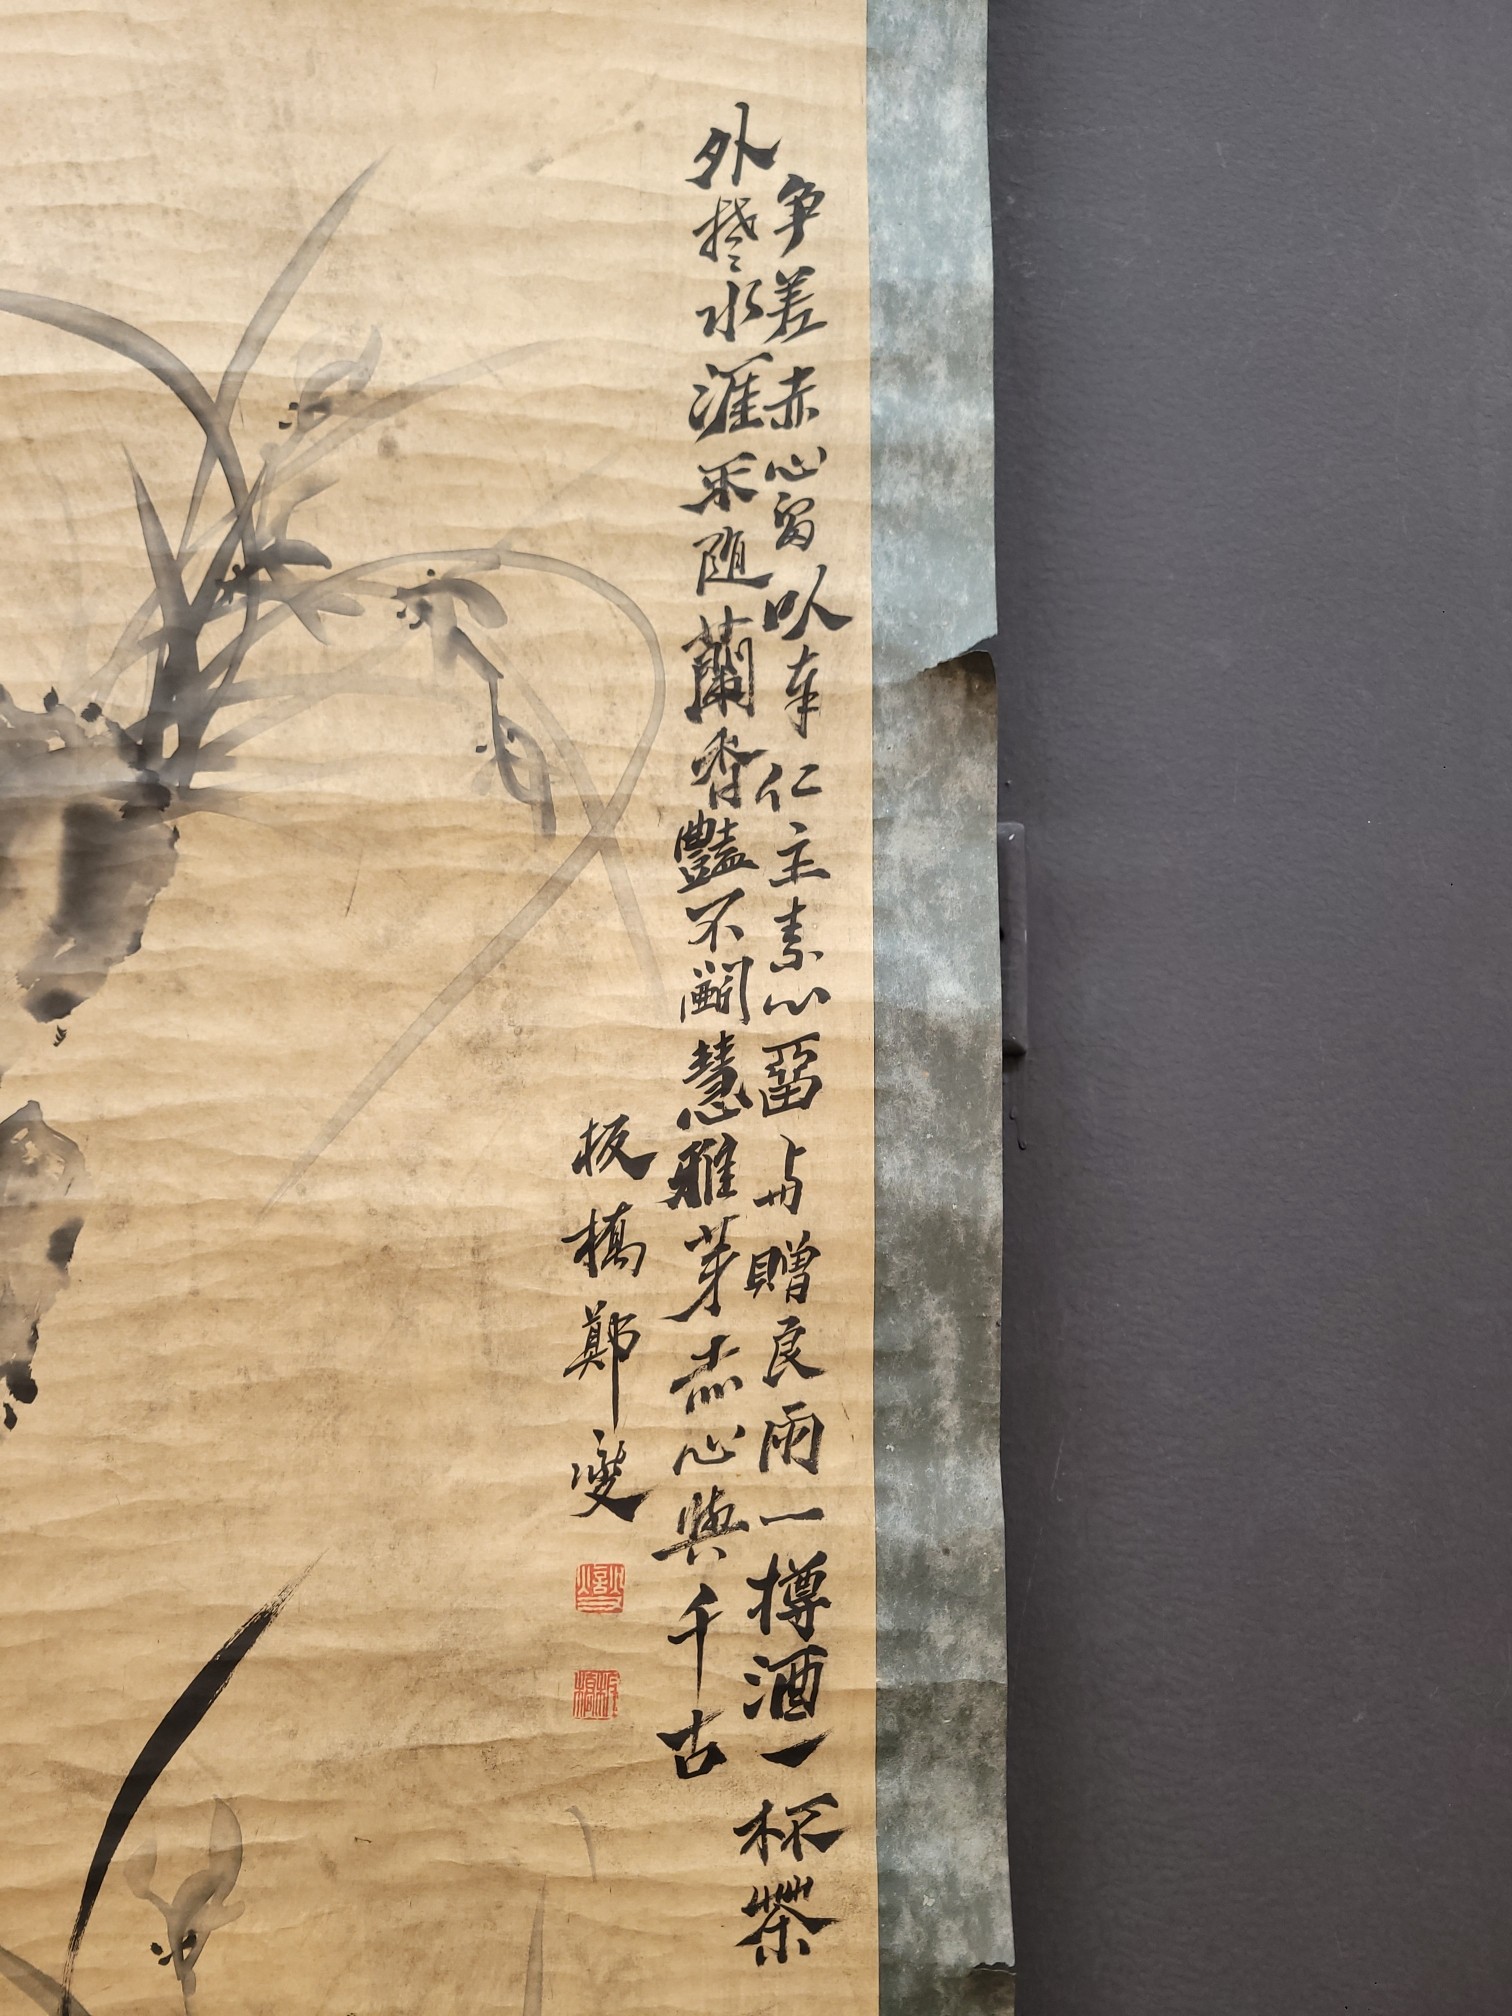 争差赤心留以奉仁主素心留与贈良雨一樽酒一杯榮
外搓水涯采随蘭香豔不鬭慧雅芽赤心與千古
板橋鄭燮
板橋